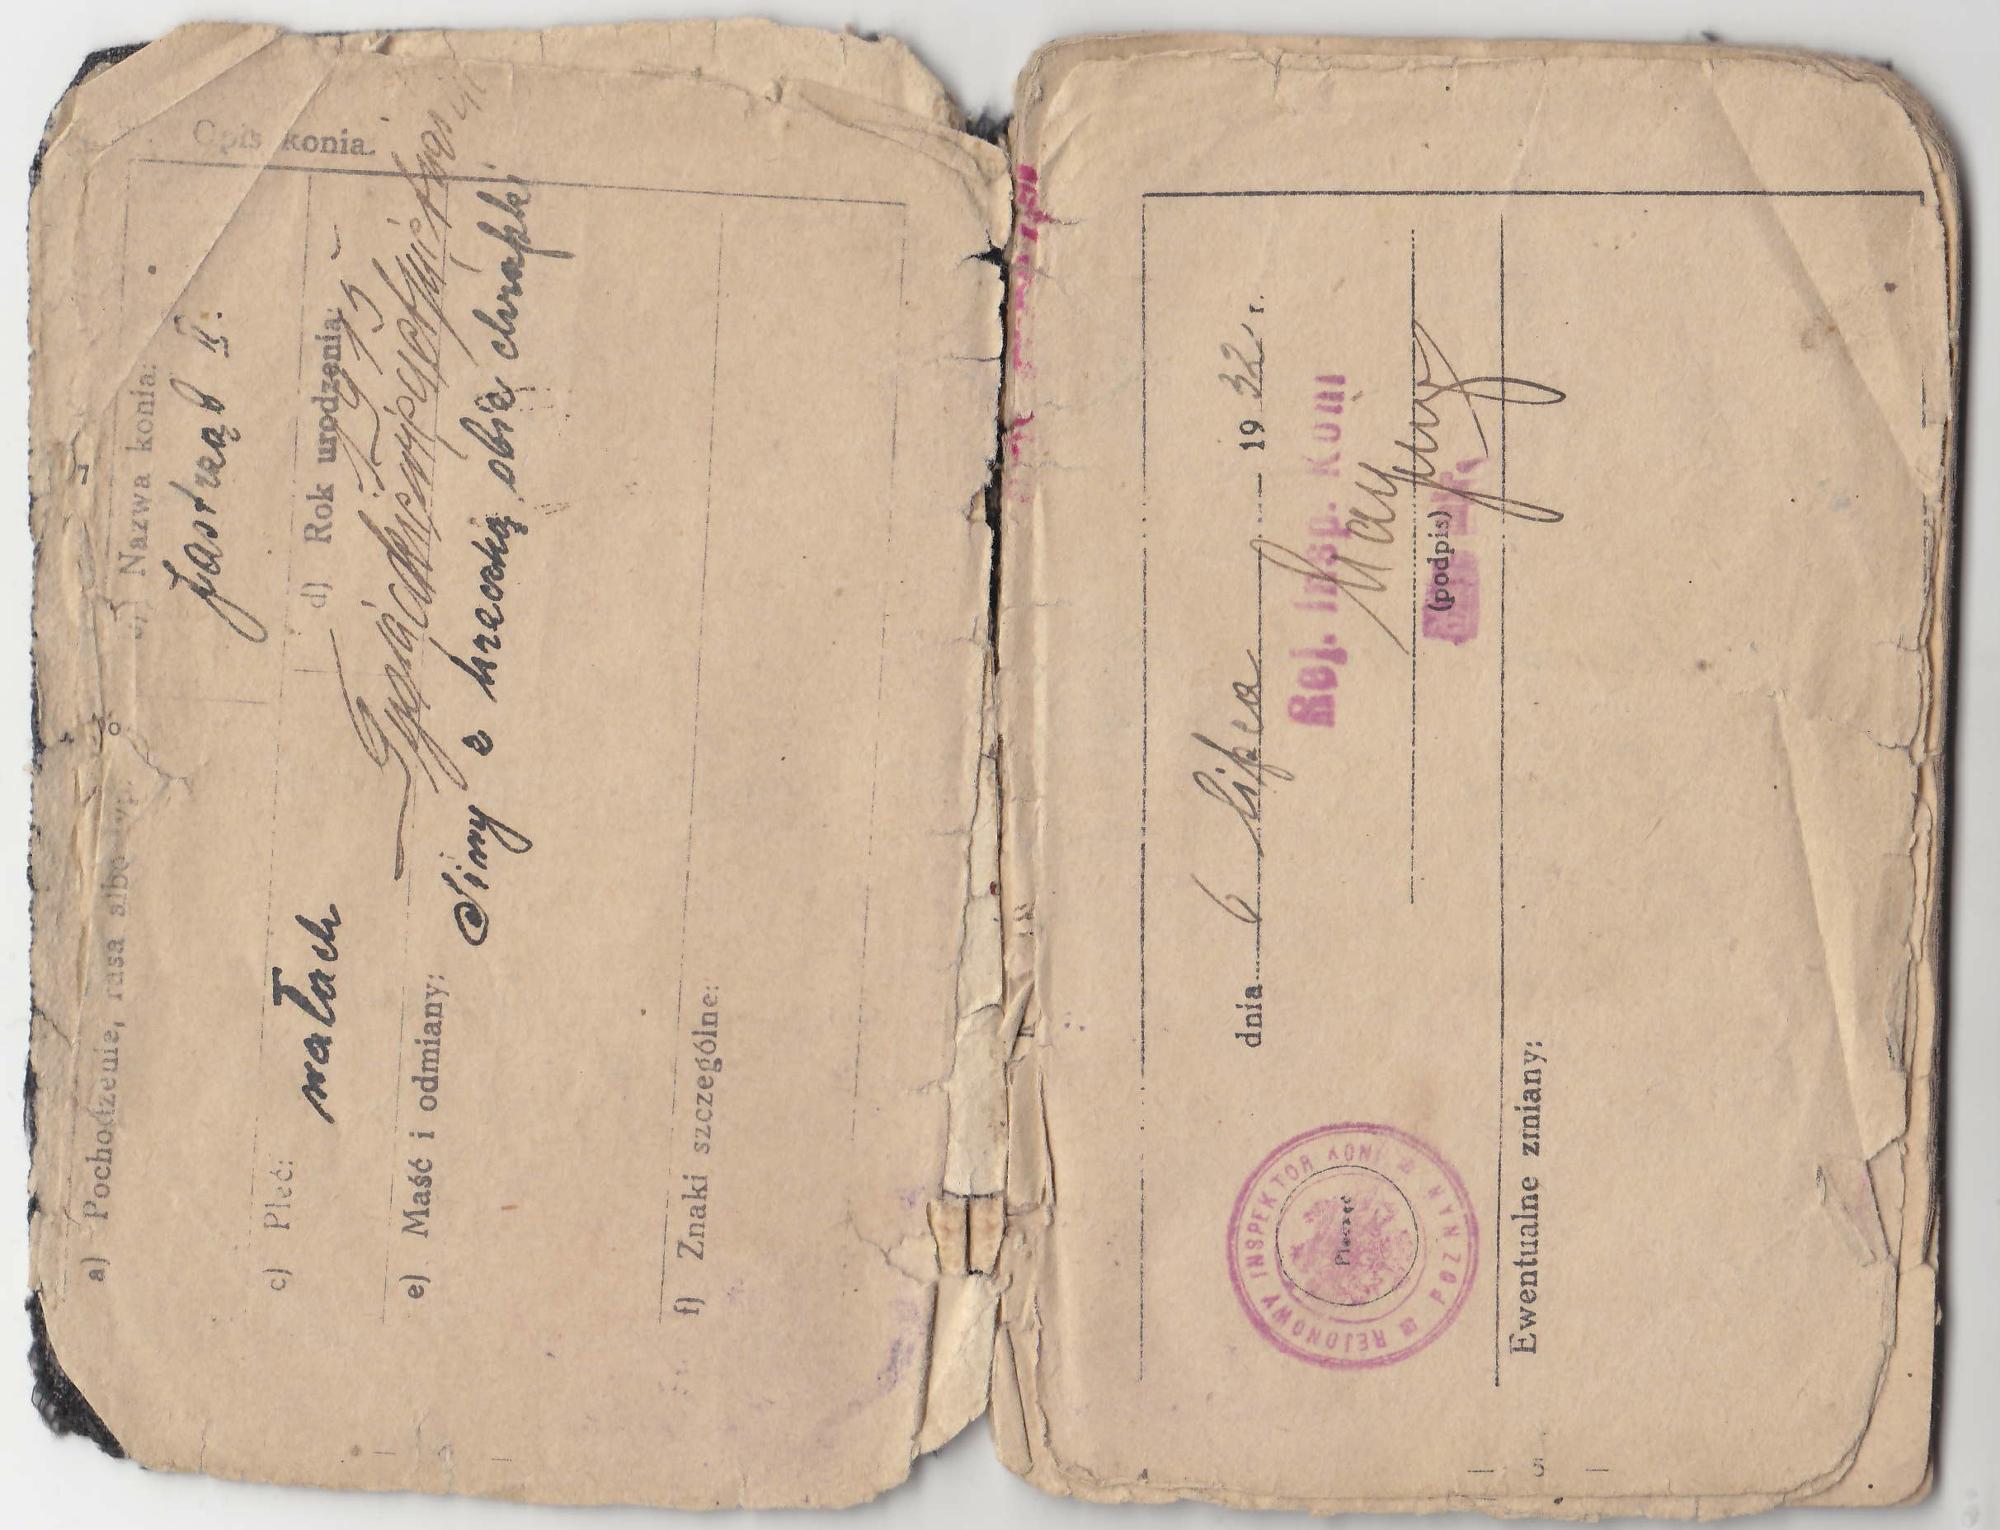 Opis konia.
a) Pochodzenie, rasa albo typ:
b) Nazwa konia:
Jastrząb II.
c) Płeć:
wałach
d) Rok urodzenia:
e) Maść i odmiany:
Siwy z hreczką, obie chrapki
f) Znaki szczególne:
dnia 6 lipca 1932 r.
Rej. Insp. Koni
(podpis)
REJONOWY INSPEKTOR KONI POZNAŃ
Pieczęć
Ewentualne zmiany: